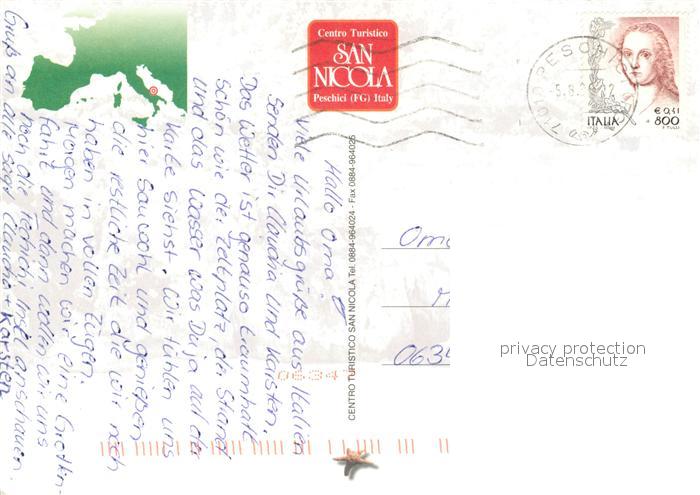 Centro Turistico
SAN
NICOLA
Peschici (FG) Italy
ITALIA
€ 0,41
800
CENTRO TURISTICO SAN NICOLA Tel. 0884-964024 - Fax 0884-964025
Hallo Oma!
Viele Urlaubsgrüße aus Italien
senden Dir Claudia und Karsten.
Das Wetter ist genauso traumhaft
schön wie der Zeltplatz, der Strand
und das Wasser was Du ja auf der
Karte siehst. Wir fühlen uns
hier Sauwohl und genießen
die restliche Zeit die wir noch
haben in vollen Zügen.
Morgen machen wir eine Grotten-
fahrt und dann wollen wir uns
noch die Insel anschauen.
Gruß an alle sagt Claudia + Karsten
Oma
0634
06347
privacy protection
Datenschutz